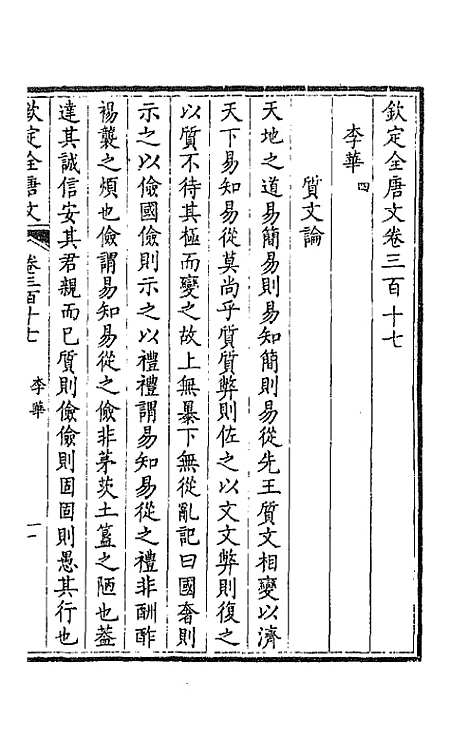 欽定全唐文卷三百十七
李華 四
質文論
天地之道易簡易則易知簡則易從先王質文相變以濟
天下易知易從莫尚乎質質弊則佐之以文文弊則復之
以質不待其極而變之故上無暴下無從亂記曰國奢則
示之以儉國儉則示之以禮禮謂易知易從之禮非酬酢
裼襲之煩也儉謂易知易從之儉非茅茨土簋之陋也蓋
達其誠信安其君親而已質則儉儉則固固則愚其行也
欽定全唐文
卷三百十七
李華
一